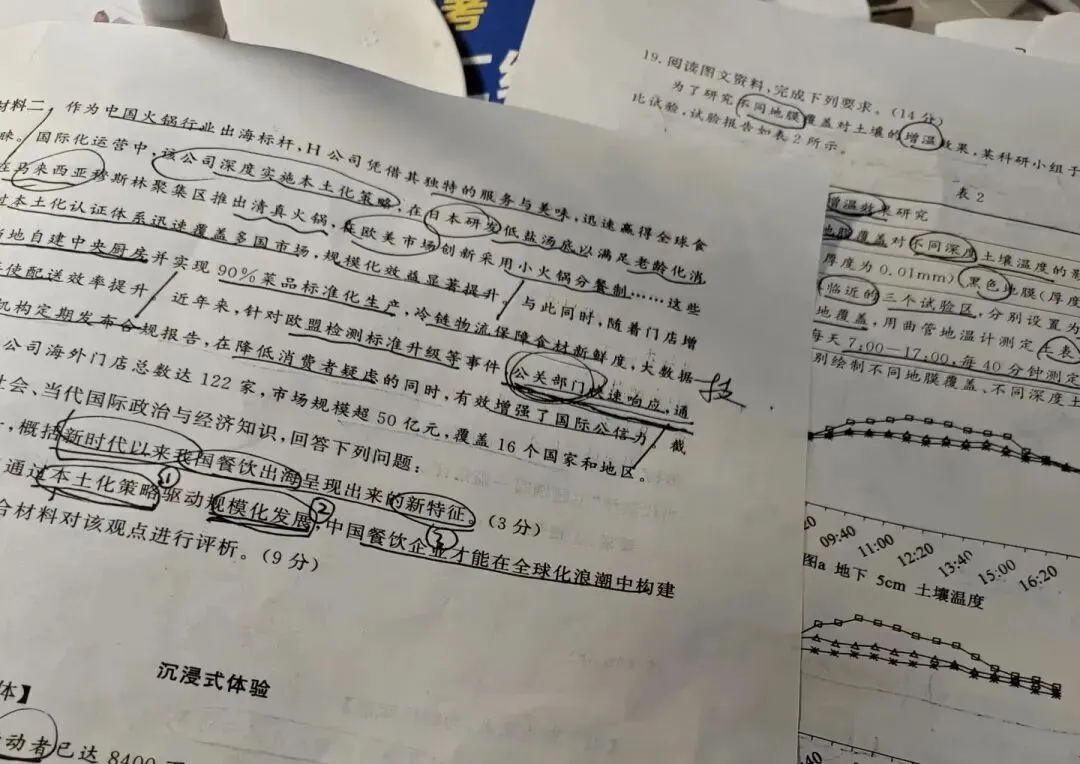 考
材料二 作为中国火锅行业出海标杆，H 公司凭借其独特的服务与美味，迅速赢得全球食
国际化运营中，该公司深度实施本土化策略，在日本研发低盐汤底以满足老龄化消
在马来西亚穆斯林聚集区推出清真火锅，在欧美市场创新采用小火锅分餐制……这些
本土化认证体系迅速覆盖多国市场，规模化效益显著提升。与此同时，随着门店增
地自建中央厨房并实现 90％菜品标准化生产，冷链物流保障食材新鲜度，大数据
使配送效率提升。近年来，针对欧盟检测标准升级等事件，公关部门快速响应，通
机构定期发布合规报告，在降低消费者疑虑的同时，有效增强了国际公信力。截
公司海外门店总数达 122 家，市场规模超 50 亿元，覆盖 16 个国家和地区。
社会、当代国际政治与经济知识，回答下列问题：
，概括新时代以来我国餐饮出海呈现出来的新特征。（3 分）
通过本土化策略驱动规模化发展，中国餐饮企业才能在全球化浪潮中构建
合材料对该观点进行评析。（9 分）
① ② ③
技
沉浸式体验
体】
动者已达 8400
19. 阅读图文资料，完成下列要求。（14 分）
为了研究不同地膜覆盖对土壤的增温效果，某科研小组于
比试验，试验报告如表 2 所示。
表 2
增温效果研究
地膜覆盖对不同深度土壤温度的影
厚度为 0.01mm）黑色地膜（厚度
临近的三个试验区，分别设置为
地覆盖，用曲管地温计测定
每天 7:00—17:00，每 40 分钟测定
别绘制不同地膜覆盖、不同深度土
09:40 11:00 12:20 13:40 15:00 16:20
图a 地下 5cm 土壤温度
09:40